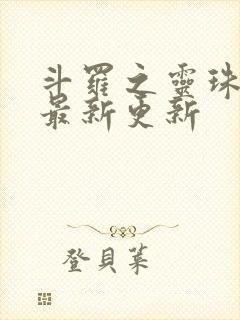 斗羅之靈珠
最新更新
登貝萊